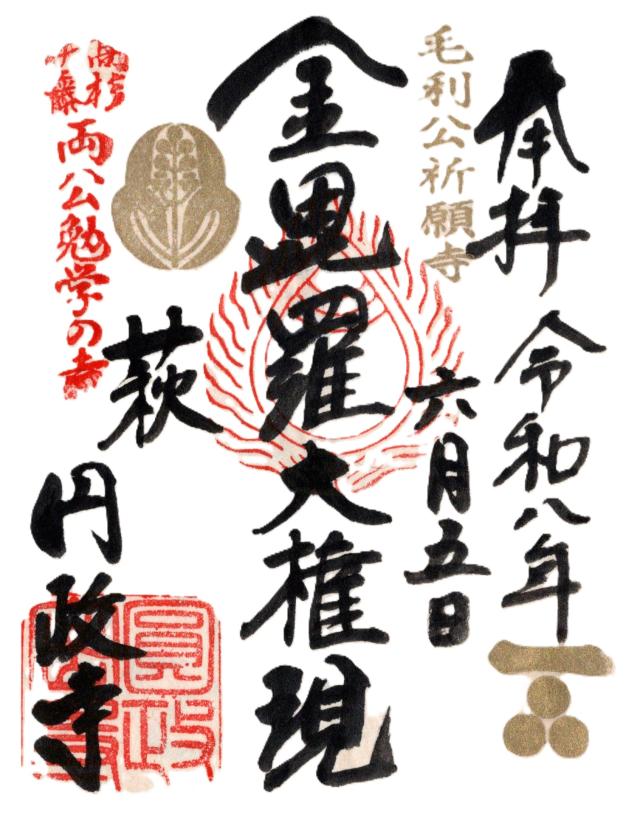 奉拝 令和八年
六月五日
毛利公祈願寺
金毘羅大権現
萩
円政寺
高杉
伊藤
両公勉学の寺
圓政